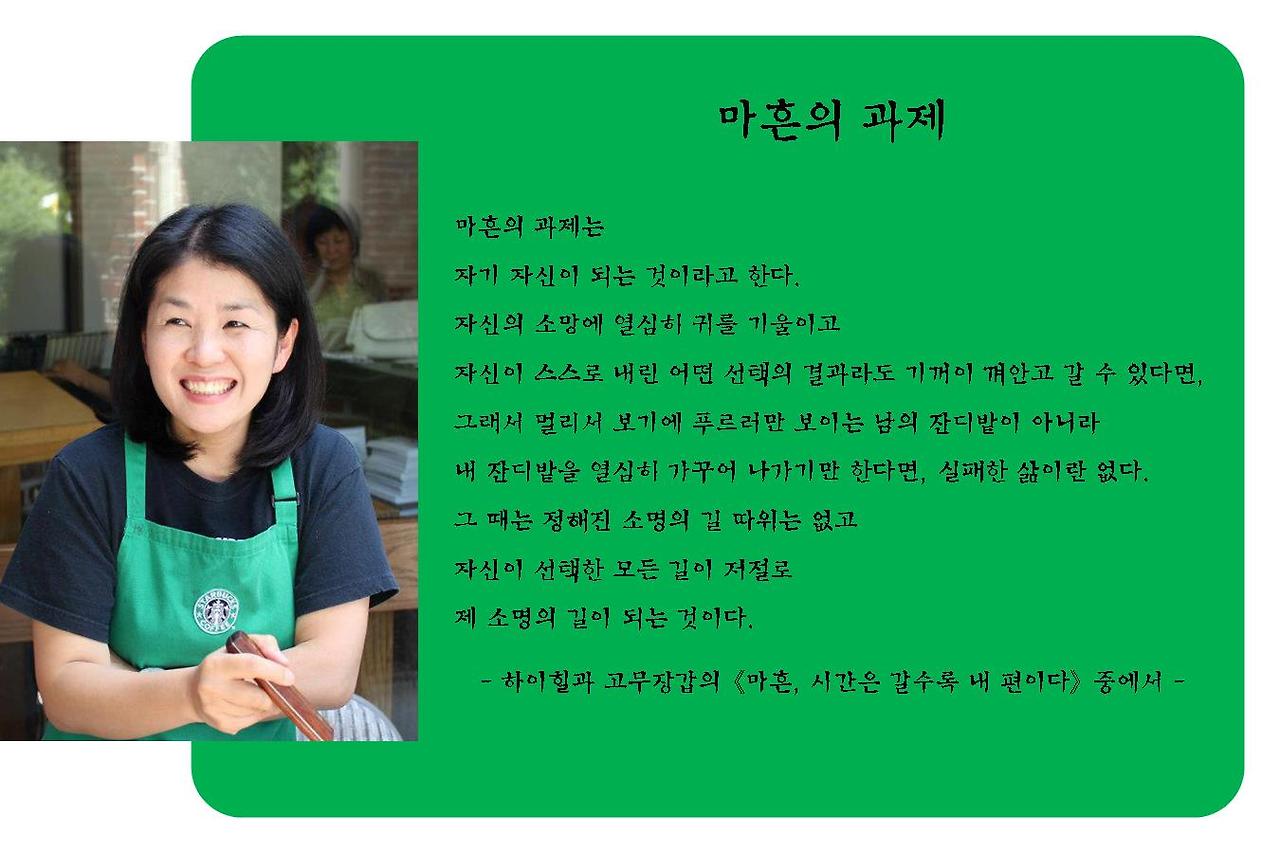 마흔의 과제
마흔의 과제는
자기 자신이 되는 것이라고 한다.
자신의 소망에 열심히 귀를 기울이고
자신이 스스로 내린 어떤 선택의 결과라도 기꺼이 껴안고 갈 수 있다면,
그래서 멀리서 보기에 푸르러만 보이는 남의 잔디밭이 아니라
내 잔디밭을 열심히 가꾸어 나가기만 한다면, 실패한 삶이란 없다.
그 때는 정해진 소명의 길 따위는 없고
자신이 선택한 모든 길이 저절로
제 소명의 길이 되는 것이다.
- 하이힐과 고무장갑의 《마흔, 시간은 갈수록 내 편이다》 중에서 -
STARBUCKS
COFFEE